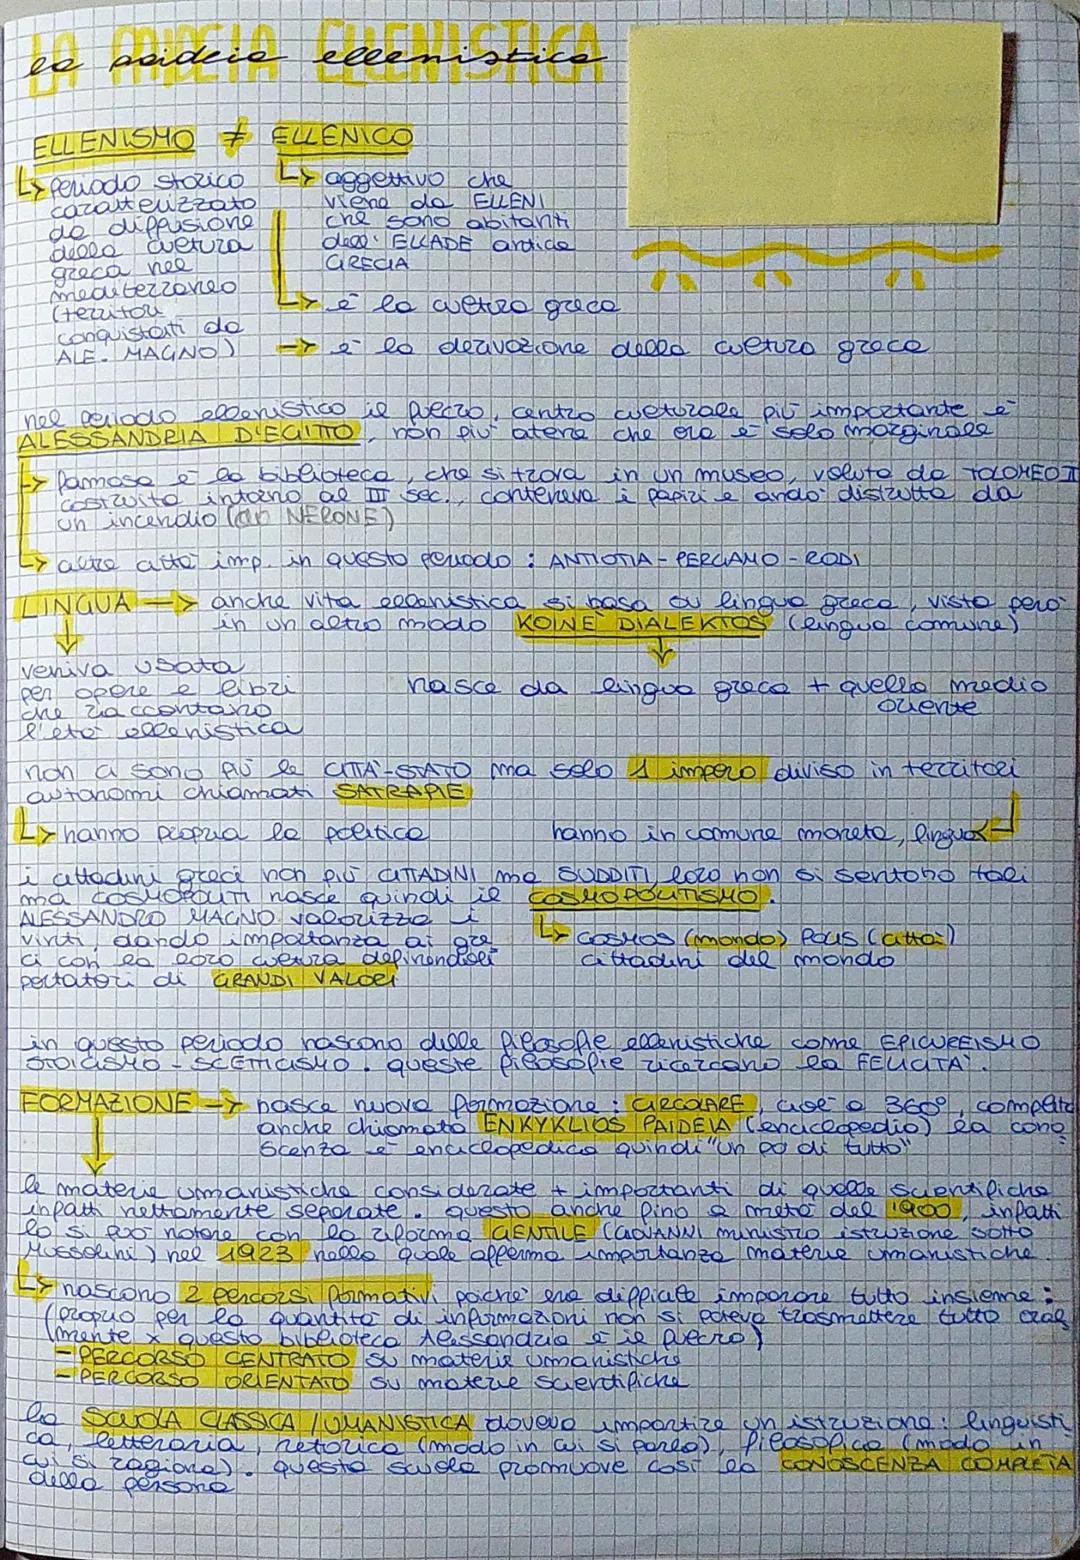 LA PAIDEIA ELLENISTICA
la paideia ellenistica
ELLENISMO ≠ ELLENICO
↳ periodo storico
caratterizzato
da diffusione
della cultura
greca nel
mediterraneo
(territori
conquistati da
ALE. MAGNO)
↳ aggettivo che
viene da ELLENI
che sono abitanti
dell' ELLADE antica
GRECIA
↳ è la cultura greca
→ è la derivazione della cultura greca
nel periodo ellenistico il fulcro, centro culturale più importante è
ALESSANDRIA D'EGITTO, non più atene che ora è solo marginale
↳ famosa è la biblioteca, che si trova in un museo, voluta da TOLOMEO II
costruita intorno al III sec., conteneva i papiri e andò distrutta da
un incendio (da NERONE)
↳ altre città imp. in questo periodo: ANTIOTIA - PERGAMO - RODI
LINGUA → anche vita ellenistica si basa su lingua greca, vista però
in un altro modo KOINÈ DIALEKTOS (lingua comune)
veniva usata
per opere e libri
che raccontano
l'età ellenistica
nasce da lingua greca + quella medio
oriente
non ci sono più le CITTÀ-STATO ma solo 1 impero diviso in territori
autonomi chiamati SATRAPIE
↳ hanno propria la politica
hanno in comune moneta, lingua
i cittadini greci non più CITTADINI ma SUDDITI, loro non si sentono tali
ma COSMOPOLITI nasce quindi il COSMOPOLITISMO.
ALESSANDRO MAGNO valorizza i
vinti, dando importanza ai gre
ci con la loro cultura definendoli
portatori di GRANDI VALORI
↳ COSMOS (mondo) POLIS (città)
cittadini del mondo
in questo periodo nascono delle filosofie ellenistiche come EPICUREISMO
STOICISMO - SCETTICISMO. queste filosofie ricercano la FELICITÀ.
FORMAZIONE → nasce nuova formazione: CIRCOLARE, cioè a 360°, completa
anche chiamata ENKYKLIOS PAIDEIA (enciclopedia) la cono
scenza è enciclopedica quindi "un po di tutto"
le materie umanistiche considerate + importanti di quelle scientifiche
infatti nettamente separate. questo anche fino a metà del 1900, infatti
lo si può notare con la riforma GENTILE (GIOVANNI ministro istruzione sotto
Mussolini) nel 1923 nella quale afferma importanza materie umanistiche
↳ nascono 2 percorsi formativi poiché era difficile imparare tutto insieme:
(proprio per la quantità di informazioni non si poteva trasmettere tutto oral
mente x questo biblioteca Alessandria è il fulcro)
- PERCORSO CENTRATO su materie umanistiche
- PERCORSO ORIENTATO su materie scientifiche
la SCUOLA CLASSICA / UMANISTICA doveva impartire un istruzione: linguisti
ca, letteraria, retorica (modo in cui si parla), filosofica (modo in
cui si ragiona). questa scuola promuove così la CONOSCENZA COMPLETA
della persona